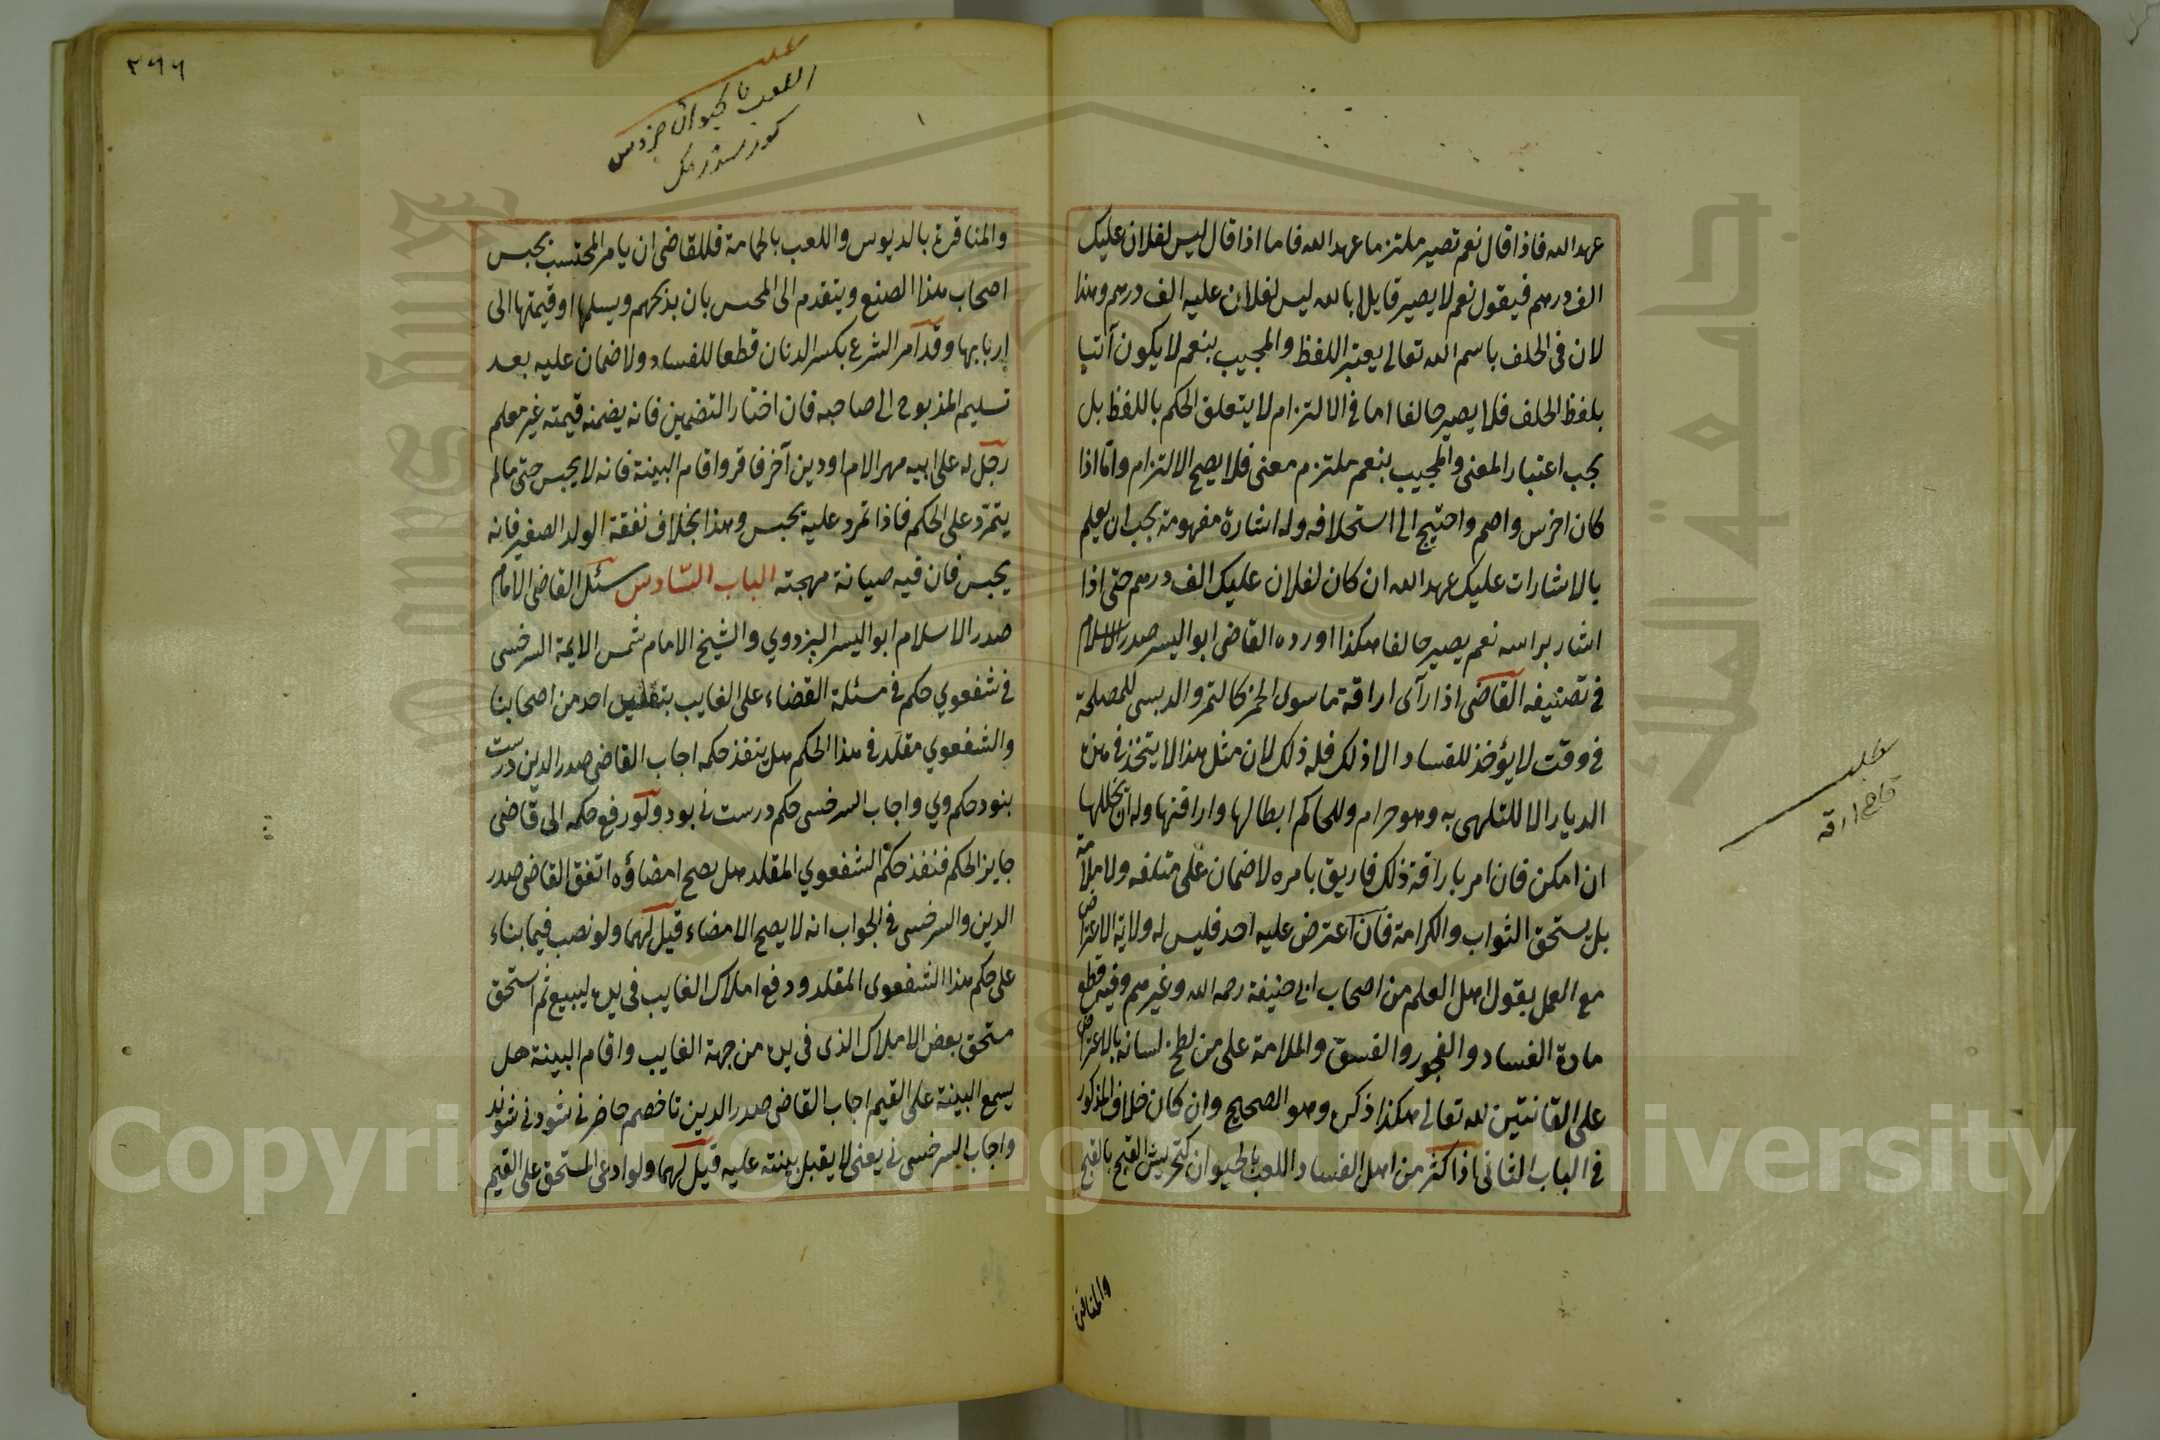 عهد الله فاذا قال نعم تصير ملتزما عهد الله فاما اذا قال ليس لفلان عليك
الف درهم فيقول نعم لا يصير قايلا بالله ليس لفلان عليه الف درهم وهذا
لان في الحلف باسم الله تعالى يعتبر اللفظ والمجيب بنعم لا يكون آتيا
بلفظ الحلف فلا يصير حالفا اما في الالتزام لا يتعلق الحكم باللفظ بل
يجب اعتبار المعنى والمجيب بنعم ملتزم معنى فلا يصح الالتزام واما اذا
كان اخرس واصم واحتيج الى استحلافه وله اشارة مفهومة يجب ان يعلم
بالاشارات عليك عهد الله ان كان لفلان عليك الف درهم حتى اذا
اشار براسه نعم يصير حالفا هكذا اورده القاضى ابو اليسر صدر الاسلام
في تصنيفه القاضى اذا رآى اراقة ما سوى الخمر كالتمر والدبسى للمصلحة
في وقت لا يؤخذ للفساد الا ذلك فله ذلك لان مثل هذا لا يتخذ في هذه
الديار الا للتلهى به وهو حرام وللحاكم ابطالها واراقتها وله ان يخللها
ان امكن فان امر باراقة ذلك فاريق بامره لا ضمان على متلفه ولا ملامة
بل يستحق الثواب والكرامة فان اعترض عليه احد فليس له ولاية الاعتراض
مع العمل بقول اهل العلم من اصحاب ابى حنيفة رحمه الله وغيرهم وفيه قطع
مادة الفساد والفجور والفسق والملامة على من لطخ لسانه بالاعتراض
على القانتين لله تعالى هكذا ذكر وهو الصحيح وان كان خلاف المذكور
في الباب الثانى اذا كثر من اهل الفساد اللعب بالحيوان كتحريش القبج بالقبج
والمناقرة
عليه
اراقه
٢٦٦
اللعب با كيوان
والمناقرة بالديوس واللعب بالحمامة فللقاضى ان يامر المحتسب بحبس
اصحاب هذا الصنع ويتقدم الى المحبس بان يذبحهم ويسلمها او قيمتها الى
اربابها وقد امر الشرع بكسر الدنان قطعا للفساد ولا ضمان عليه بعد
تسليم المذبوح الى صاحبه فان اختار التضمين فانه يضمنه قيمته غير معلم
رجل له على ابيه مهر الام او دين آخر فاقر واقام البينة فانه لا يحبس حتى مالم
يتمرد على الحكم فاذا تمرد عليه يحبس وهذا بخلاف نفقة الولد الصغير فانه
يحبس فان فيه صيانة مهجته الباب السادس سئل القاضى الامام
صدر الاسلام ابو اليسر البزدوي والشيخ الامام شمس الايمة السرخسى
في شفعوي حكم في مسئلة القضاء على الغايب بتقليد احد من اصحابنا
والشفعوي مقلد في هذا الحكم هل ينفذ حكمه اجاب القاضى صدر الدين درست
بنود حكم وي واجاب السرخسى حكم درست نى بود ولو رفع حكمه الى قاضى
جايز الحكم فنفذ حكم الشفعوي المقلد هل يصح امضاؤه اتفق القاضى صدر
الدين والسرخسى في الجواب انه لا يصح الامضاء قيل لهما ولو نصب قيما بناء
على حكم هذا الشفعوى المقلد ودفع املاك الغايب في يده ليبيع ثم استحق
مستحق بعض الاملاك الذى في يده من جهة الغايب واقام البينة هل
يسمع البينة على القيم اجاب القاضى صدر الدين تا خصم حاضر نى شود نى شنوند
واجاب السرخسى نى يعنى لا يقبل بينته عليه قيل لهما ولو ادعى المستحق على القيم